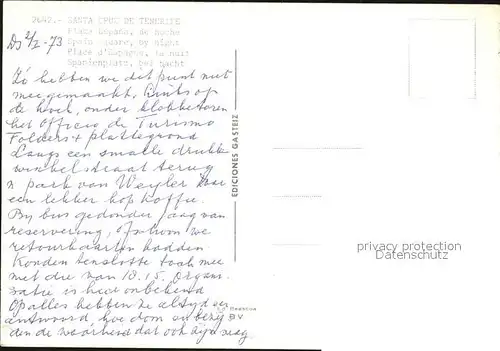 2642.- SANTA CRUZ DE TENERIFE
Plaza España, de noche
Spain square, by night
Place d'Espagne, la nuit
Spanienplatz, bei nacht
Ds 2/I-73
Zó hebben we dit punt niet
meegemaakt. Links op
de hoek, onder klokketoren
het Officio de Turismo
Folders + plattegrond
Langs een smalle drukke
winkelstraat terug
n park van Weyler waar
een lekker kop koffie.
By bus gedonder jaag van
reservering, ofschoon we
retourkaarten hadden
Konden tenslotte toch mee
met die van 18.15. Organi-
satie is hier onbekend
Op alles hebben ze altyd een
antwoord, hoe dom en bezij-
den de waarheid dat ook zyn mag
EDICIONES GASTEIZ
BV
privacy protection
Datenschutz